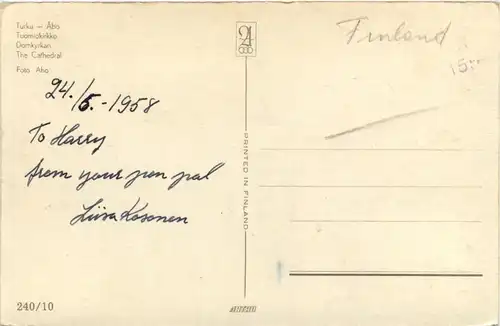 Turku — Åbo
Tuomiokirkko
Domkyrkan
The Cathedral
Foto Aho
24./5.-1958
To Harry
from your pen pal
Liisa Kosonen
240/10
PRINTED IN FINLAND
Finland
15:-